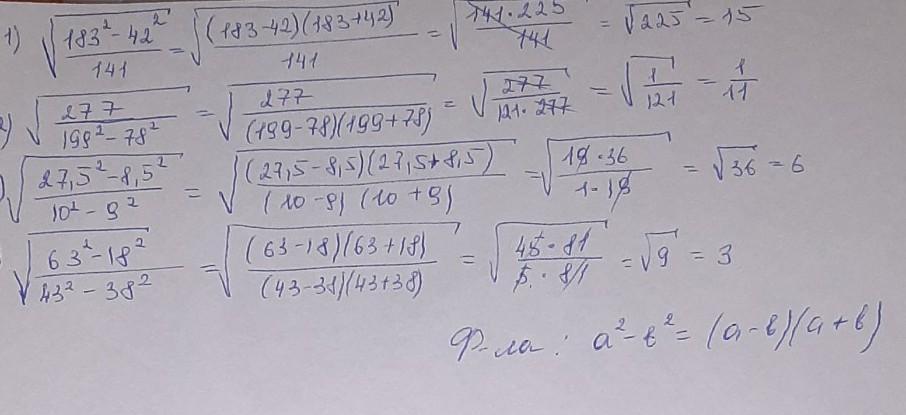 1) √((183² - 42²)/141) = √((183-42)(183+42)/141) = √(141·225/141) = √225 = 15
2) √(277/(199² - 78²)) = √(277/((199-78)(199+78))) = √(277/(121·277)) = √(1/121) = 1/11
) √((27,5² - 8,5²)/(10² - 9²)) = √((27,5-8,5)(27,5+8,5)/((10-9)(10+9))) = √(19·36/(1·19)) = √36 = 6
√((63² - 18²)/(43² - 38²)) = √((63-18)(63+18)/((43-38)(43+38))) = √(45·81/(5·81)) = √9 = 3
Ф-ла: a² - b² = (a-b)(a+b)